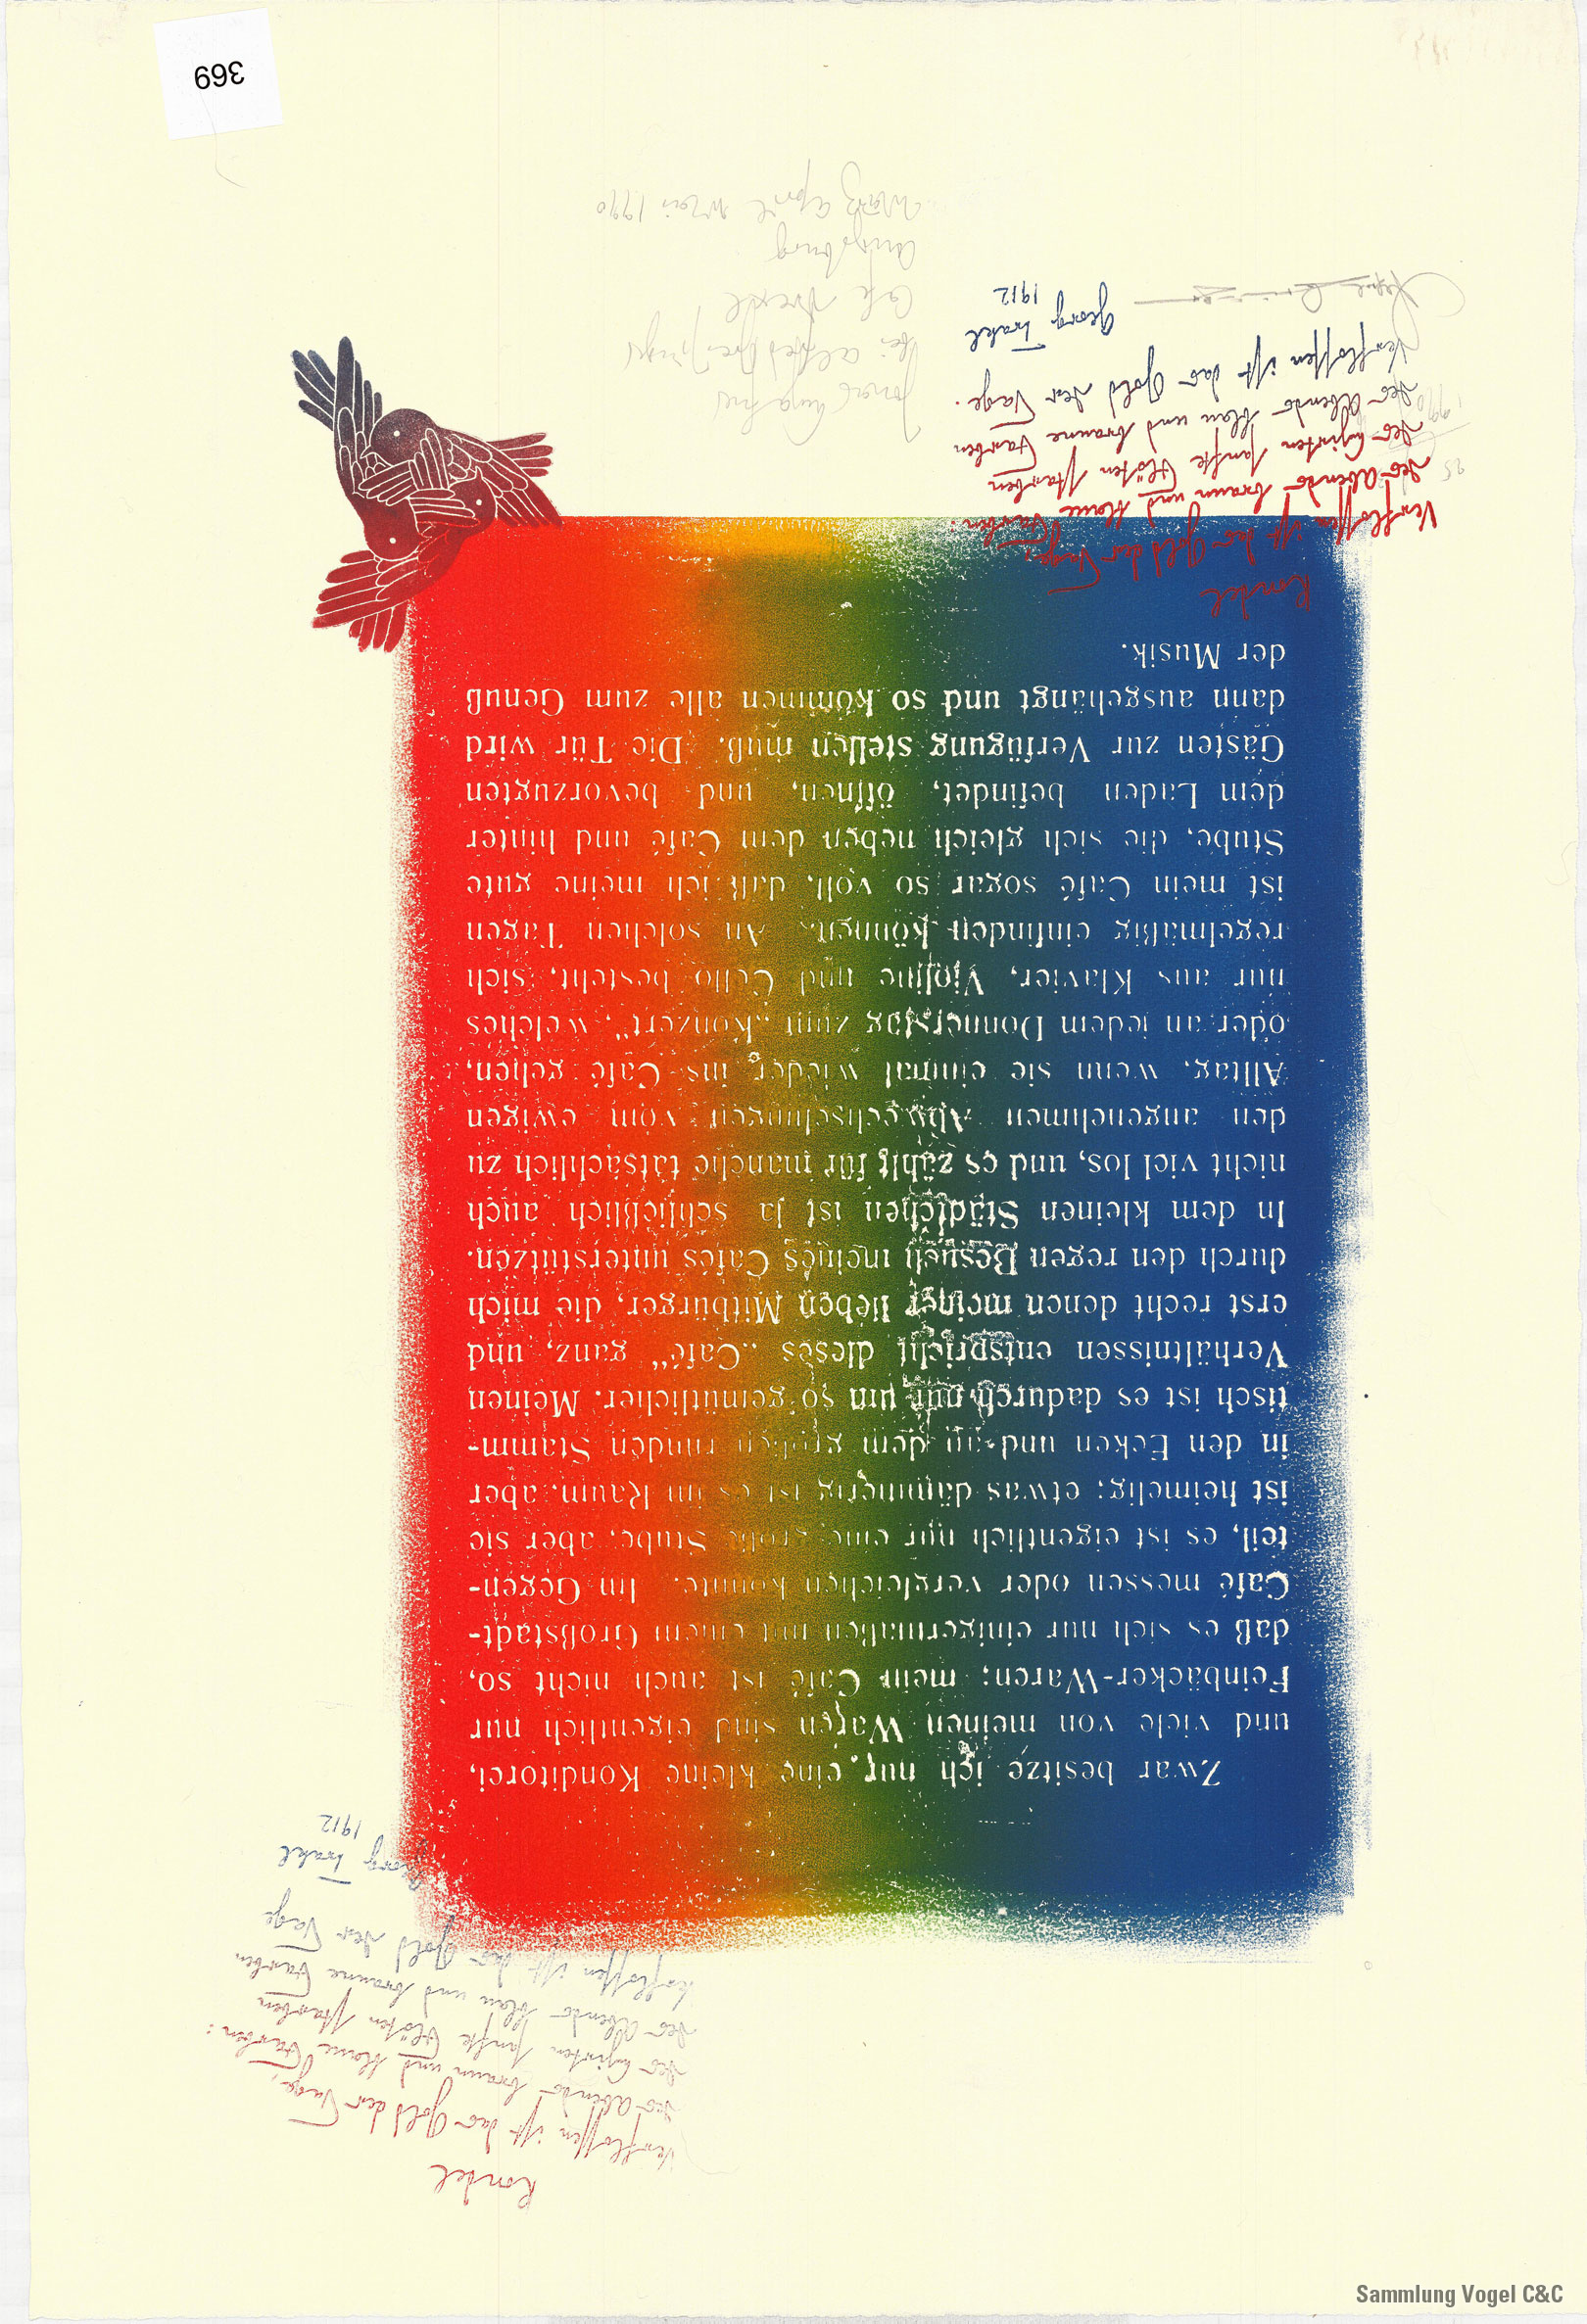 Rondel
Verflossen ist das Gold der Tage,
des Abends braun und blaue Farben:
des Hirten sanfte Flöten starben
des Abends blau und braune Farben
Verflossen ist das Gold der Tage
Georg Trakl
1912
Zwar besitze ich nur eine kleine Konditorei,
und viele von meinen Waren sind eigentlich nur
Feinbäcker-Waren; mein Café ist auch nicht so,
daß es sich nur einigermaßen mit einem Großstadt-
Café messen oder vergleichen könnte. Im Gegen-
teil, es ist eigentlich nur eine große Stube, aber sie
ist heimelig; etwas dämmerig ist es im Raum, aber
in den Ecken und an dem großen runden Stamm-
tisch ist es dadurch nur um so gemütlicher. Meinen
Verhältnissen entspricht dieses „Café“ ganz, und
erst recht denen meiner lieben Mitbürger, die mich
durch den regen Besuch meines Cafés unterstützen.
In dem kleinen Städtchen ist ja schließlich auch
nicht viel los, und es zählt für manche tatsächlich zu
den angenehmen Abwechslungen vom ewigen
Alltag, wenn sie einmal wieder ins Café gehen,
oder an jedem Donnerstag zum „Konzert“, welches
nur aus Klavier, Violine und Cello besteht, sich
regelmäßig einfinden können. An solchen Tagen
ist mein Café sogar so voll, daß ich meine gute
Stube, die sich gleich neben dem Café und hinter
dem Laden befindet, öffnen, und bevorzugten
Gästen zur Verfügung stellen muß. Die Tür wird
dann ausgehängt und so kommen alle zum Genuß
der Musik.
Rondel
Verflossen ist das Gold der Tage,
des Abends braun und blaue Farben:
des Hirten sanfte Flöten starben
des Abends blau und braune Farben
Verflossen ist das Gold der Tage.
Georg Trakl
1912
Café Drexl
Augsburg
März April Mai 1990
1990
369
Sammlung Vogel C&C